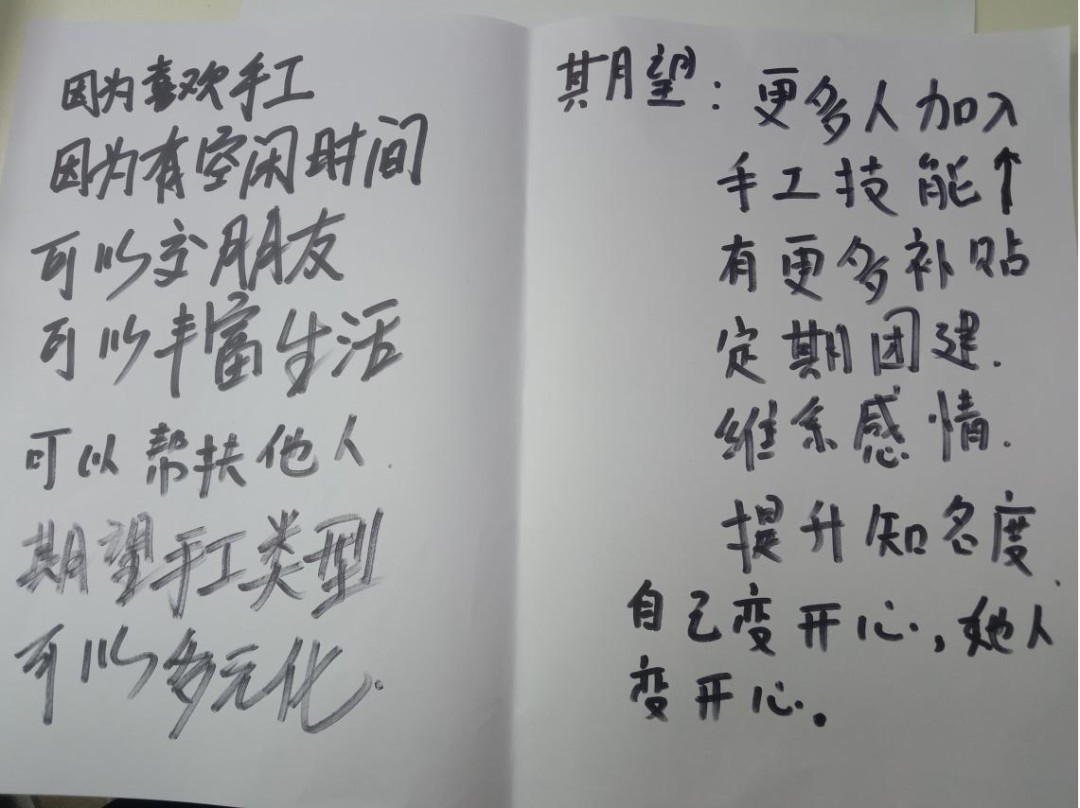 因为喜欢手工
因为有空闲时间
可以交朋友
可以丰富生活
可以帮扶他人.
期望手工类型
可以多元化.
期望：更多人加入
手工技能↑
有更多补贴
定期团建.
维系感情.
提升知名度.
自己变开心，她人
变开心。